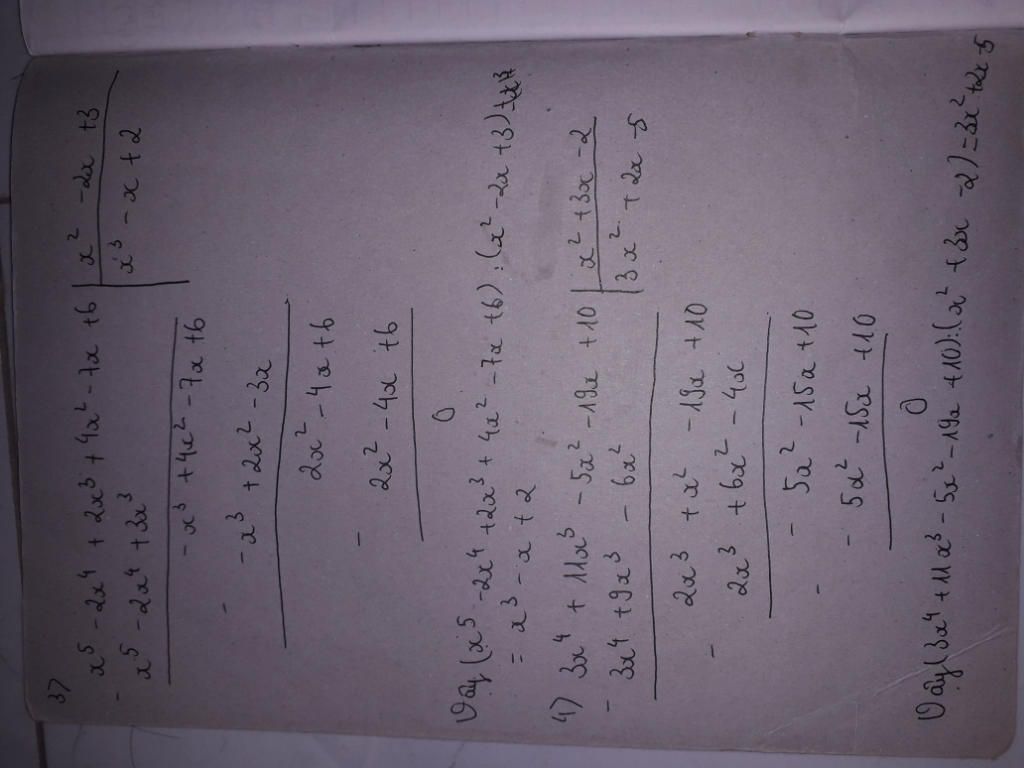 3) x⁵ - 2x⁴ + 2x³ + 4x² - 7x + 6 | x² - 2x + 3
- x⁵ - 2x⁴ + 3x³ | x³ - x + 2
- x³ + 4x² - 7x + 6
- - x³ + 2x² - 3x
2x² - 4x + 6
- 2x² - 4x + 6
0
Vậy (x⁵ - 2x⁴ + 2x³ + 4x² - 7x + 6) : (x² - 2x + 3)
= x³ - x + 2
4) 3x⁴ + 11x³ - 5x² - 19x + 10 | x² + 3x - 2
- 3x⁴ + 9x³ - 6x² | 3x² + 2x - 5
2x³ + x² - 19x + 10
- 2x³ + 6x² - 4x
- 5x² - 15x + 10
- - 5x² - 15x + 10
0
Vậy (3x⁴ + 11x³ - 5x² - 19x + 10) : (x² + 3x - 2) = 3x² + 2x - 5